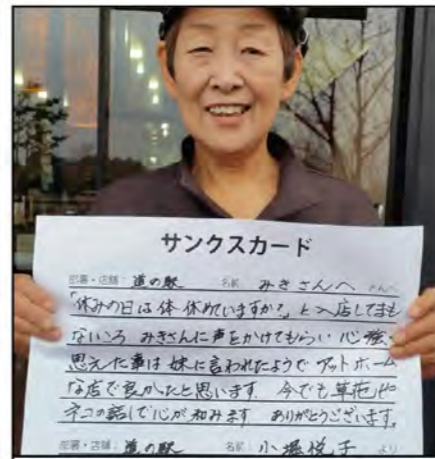 サンクスカード
部署・店舗：道の駅 名前 みきさんへ さんへ
「休みの日は体休めていますか?」と入店してまも
ないころ みきさんに声をかけてもらい 心強く
思えた事は 妹に言われたようで アットホーム
な店で良かったと思います 今でも草花や
ネコの話しで心が和みます ありがとうございます。
部署・店舗：道の駅 名前：小堀悦子 より